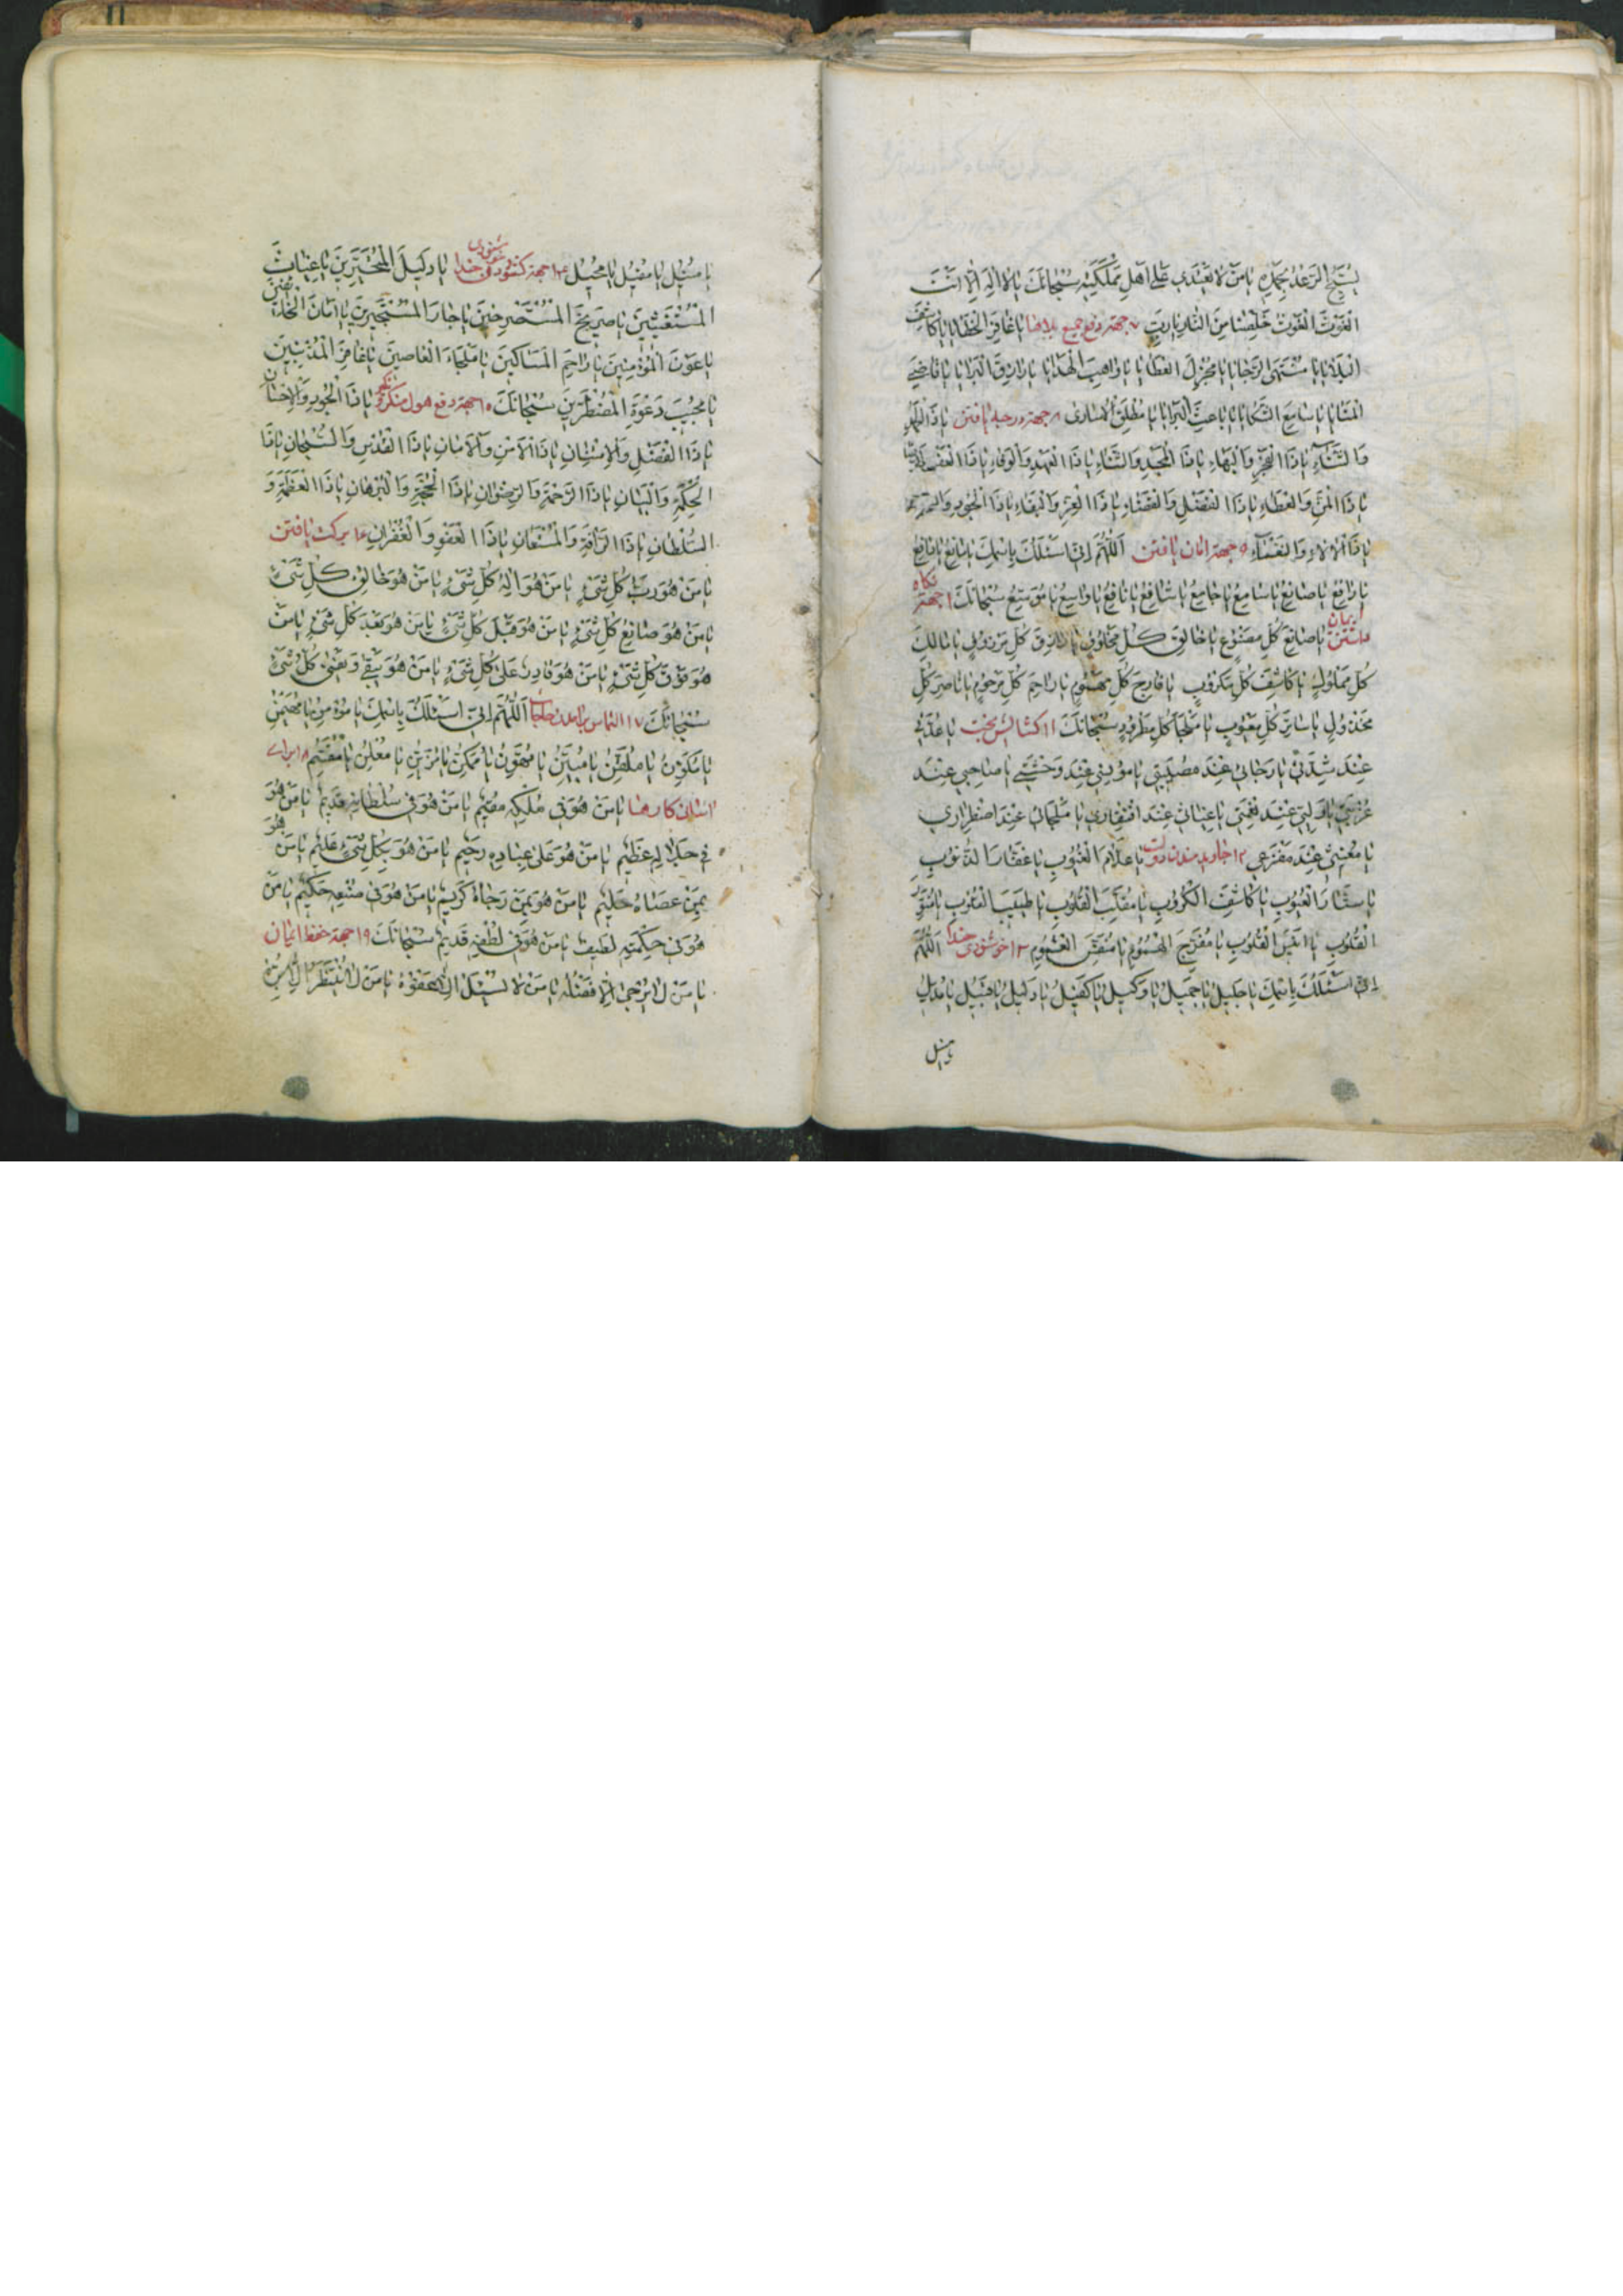 یُسَبِّحُ الرَّعْدُ بِحَمْدِهِ یا مَنْ لا یَعْتَدی عَلی اَهْلِ مَمْلَکَتِهِ سُبْحانَکَ یا لا اِلهَ اِلّا اَنْتَ
الْغَوْثَ الْغَوْثَ خَلِّصْنا مِنَ النّارِ یا رَبِّ ۷ جهة دفع جمیع بلاها یا غافِرَ الْخَطایا یا کاشِفَ
الْبَلایا یا مُنْتَهَی الرَّجایا یا مُجْزِلَ الْعَطایا یا واهِبَ الْهَدایا یا رازِقَ الْبَرایا یا قاضِیَ
الْمَنایا یا سامِعَ الشَّکایا یا باعِثَ الْبَرایا یا مُطْلِقَ الْاُساری ۸ جهة درجه یافتن یا ذَا الْحَمْدِ
وَالثَّناءِ یا ذَا الْفَخْرِ وَالْبَهاءِ یا ذَا الْمَجْدِ وَالسَّناءِ یا ذَا الْعَهْدِ وَالْوَفاءِ یا ذَا الْعَفْوِ وَالرِّضا
یا ذَا الْمَنِّ وَالْعَطاءِ یا ذَا الْفَصْلِ وَالْقَضاءِ یا ذَا الْعِزِّ وَالْبَقاءِ یا ذَا الْجُودِ وَالسَّخا
یا ذَا الْآلاءِ وَالنَّعْماءِ ۹ جهة امان یافتن اَللّهُمَّ اِنّی اَسْئَلُکَ بِاسْمِکَ یا مانِعُ یا دافِعُ
یا رافِعُ یا صانِعُ یا سامِعُ یا جامِعُ یا شافِعُ یا نافِعُ یا واسِعُ یا مُوَسِّعُ سُبْحانَکَ ۱۰ جهة نکاه
داشتن ایمان یا صانِعَ کُلِّ مَصْنُوعٍ یا خالِقَ کُلِّ مَخْلُوقٍ یا رازِقَ کُلِّ مَرْزُوقٍ یا مالِکَ
کُلِّ مَمْلُوکٍ یا کاشِفَ کُلِّ مَکْرُوبٍ یا فارِجَ کُلِّ مَهْمُومٍ یا راحِمَ کُلِّ مَرْحُومٍ یا ناصِرَ کُلِّ
مَخْذُولٍ یا ساتِرَ کُلِّ مَعْیُوبٍ یا مَلْجَاَ کُلِّ مَطْرُودٍ سُبْحانَکَ ۱۱ کشایش بخت یا عُدَّتی
عِنْدَ شِدَّتی یا رَجائی عِنْدَ مُصیبَتی یا مُونِسی عِنْدَ وَحْشَتی یا صاحِبی عِنْدَ
غُرْبَتی یا وَلِیّی عِنْدَ نِعْمَتی یا غِیاثی عِنْدَ افْتِقاری یا مَلْجَائی عِنْدَ اضْطِراری
یا مُعینی عِنْدَ مَفْزَعی ۱۲ جاوید ماندن دولت یا عَلّامَ الْغُیُوبِ یا غَفّارَ الذُّنُوبِ
یا سَتّارَ الْعُیُوبِ یا کاشِفَ الْکُرُوبِ یا مُقَلِّبَ الْقُلُوبِ یا طَبیبَ الْقُلُوبِ یا مُنَوِّرَ
الْقُلُوبِ یا اَنیسَ الْقُلُوبِ یا مُفَرِّجَ الْهُمُومِ یا مُنَفِّسَ الْغُمُومِ ۱۳ خوشنودی خدا اَللّهُمَّ
اِنّی اَسْئَلُکَ بِاسْمِکَ یا جَلیلُ یا جَمیلُ یا وَکیلُ یا کَفیلُ یا دَلیلُ یا قَبیلُ یا مُدیلُ
یا منیل
یا مُنیلُ یا مُقیلُ یا مُحیلُ ۱۴ جهة خشنودی خدا یا دَلیلَ الْمُتَحَیِّرینَ یا غِیاثَ
الْمُسْتَغیثینَ یا صَریخَ الْمُسْتَصْرِخینَ یا جارَ الْمُسْتَجیرینَ یا اَمانَ الْخائِفینَ
یا عَوْنَ الْمُؤْمِنینَ یا راحِمَ الْمَساکینَ یا مَلْجَاءَ الْعاصینَ یا غافِرَ الْمُذْنِبینَ
یا مُجیبَ دَعْوَةِ الْمُضْطَرّینَ سُبْحانَکَ ۱۵ جهة دفع هول منکر و نکیر یا ذَا الْجُودِ وَالْاِحْسانِ
یا ذَا الْفَضْلِ وَالْاِمْتِنانِ یا ذَا الْاَمْنِ وَالْاَمانِ یا ذَا الْقُدْسِ وَالسُّبْحانِ یا ذَا
الْحِکْمَةِ وَالْبَیانِ یا ذَا الرَّحْمَةِ وَالرِّضْوانِ یا ذَا الْحُجَّةِ وَالْبُرْهانِ یا ذَا الْعَظَمَةِ وَ
السُّلْطانِ یا ذَا الرَّاْفَةِ وَالْمُسْتَعانِ یا ذَا الْعَفْوِ وَالْغُفْرانِ ۱۶ برکت یافتن
یا مَنْ هُوَ رَبُّ کُلِّ شَیْءٍ یا مَنْ هُوَ اِلهُ کُلِّ شَیْءٍ یا مَنْ هُوَ خالِقُ کُلِّ شَیْءٍ
یا مَنْ هُوَ صانِعُ کُلِّ شَیْءٍ یا مَنْ هُوَ قَبْلَ کُلِّ شَیْءٍ یا مَنْ هُوَ بَعْدَ کُلِّ شَیْءٍ یا مَنْ
هُوَ فَوْقَ کُلِّ شَیْءٍ یا مَنْ هُوَ قادِرٌ عَلی کُلِّ شَیْءٍ یا مَنْ هُوَ یَبْقی وَ یَفْنی کُلُّ شَیْءٍ
سُبْحانَکَ ۱۷ التماس برآمدن حاجتها اَللّهُمَّ اِنّی اَسْئَلُکَ بِاسْمِکَ یا مُؤْمِنُ یا مُهَیْمِنُ
یا مُکَوِّنُ یا مُلَقِّنُ یا مُبَیِّنُ یا مُهَوِّنُ یا مُمَکِّنُ یا مُزَیِّنُ یا مُعْلِنُ یا مُقَسِّمُ ۱۸ برای
آسانی کارها یا مَنْ هُوَ فی مُلْکِهِ مُقیمٌ یا مَنْ هُوَ فی سُلْطانِهِ قَدیمٌ یا مَنْ هُوَ
فی جَلالِهِ عَظیمٌ یا مَنْ هُوَ عَلی عِبادِهِ رَحیمٌ یا مَنْ هُوَ بِکُلِّ شَیْءٍ عَلیمٌ یا مَنْ هُوَ
بِمَنْ عَصاهُ حَلیمٌ یا مَنْ هُوَ بِمَنْ رَجاهُ کَریمٌ یا مَنْ هُوَ فی صُنْعِهِ حَکیمٌ یا مَنْ
هُوَ فی حِکْمَتِهِ لَطیفٌ یا مَنْ هُوَ فی لُطْفِهِ قَدیمٌ سُبْحانَکَ ۱۹ جهة حفظ ایمان
یا مَنْ لا یُرْجی اِلّا فَضْلُهُ یا مَنْ لا یُسْئَلُ اِلّا عَفْوُهُ یا مَنْ لا یُنْتَظَرُ اِلّا بِرُّهُ